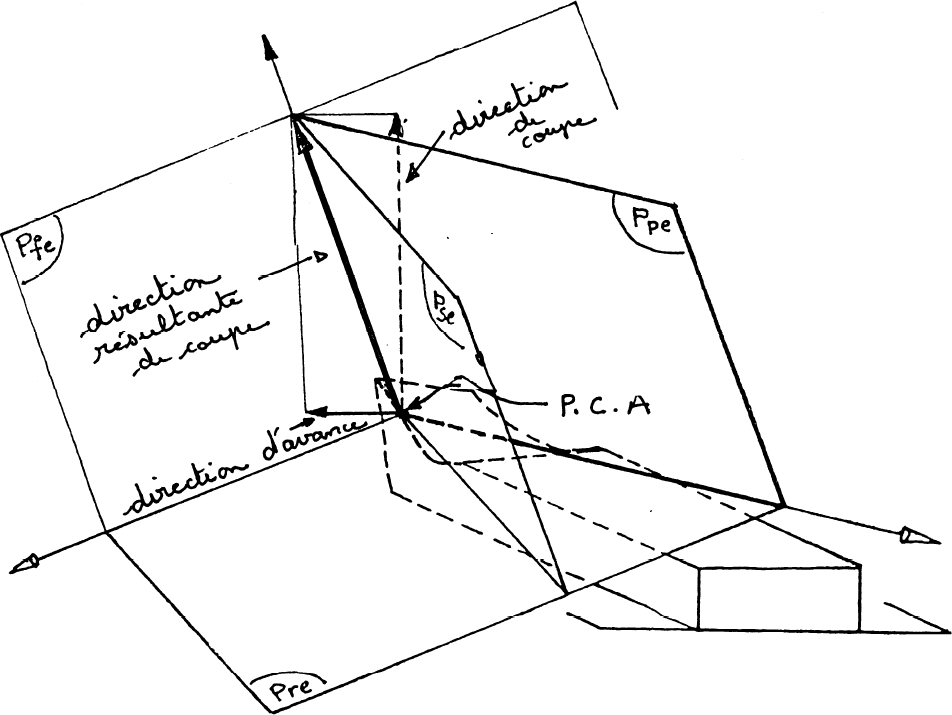 direction
de
coupe
Pfe
Ppe
direction
résultante
de coupe
Pse
P.C.A
direction d'avance
Pre